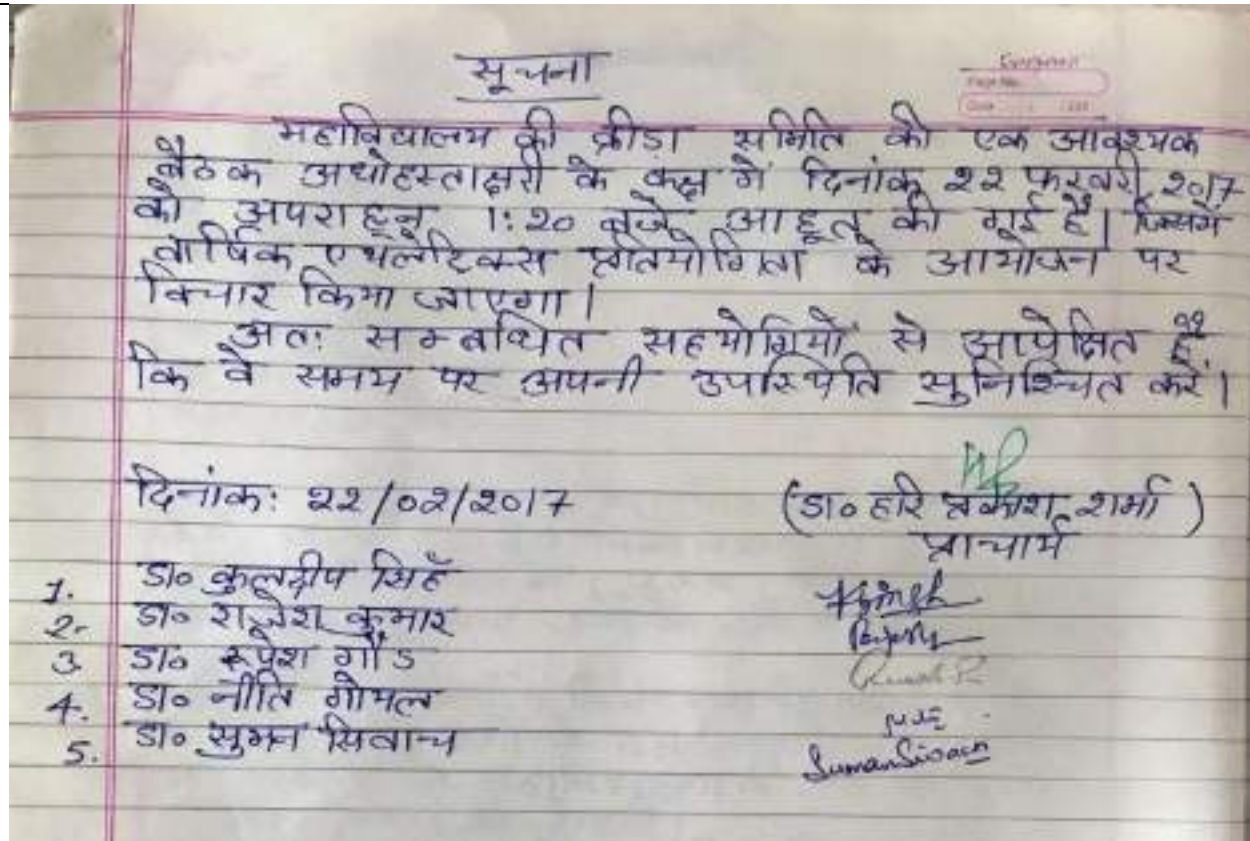 सूचना
Page No.
Date
महाविद्यालय की क्रीड़ा समिति की एक आवश्यक
बैठक अधोहस्ताक्षरी के कक्ष में दिनांक २२ फरवरी २०17
को अपराहन् 1:२० बजे आहूत की गई है। जिसमें
वार्षिक एथलेटिक्स प्रतियोगिता के आयोजन पर
विचार किया जाएगा।
अत: सम्बंधित सहयोगियों से आपेक्षित है
कि वे समय पर अपनी उपस्थिति सुनिश्चित करें।
दिनांक: २२/०२/२०17
(डा० हरि प्रकाश शर्मा)
प्राचार्य
1. डा० कुलदीप सिहँ
2. डा० राजेश कुमार
3. डा० रूपेश गौड
4. डा० नीति गोयल
5. डा० सुमन सिवाच
Suman Siwach